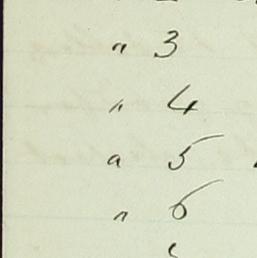 " 3
" 4
" 5
" 6